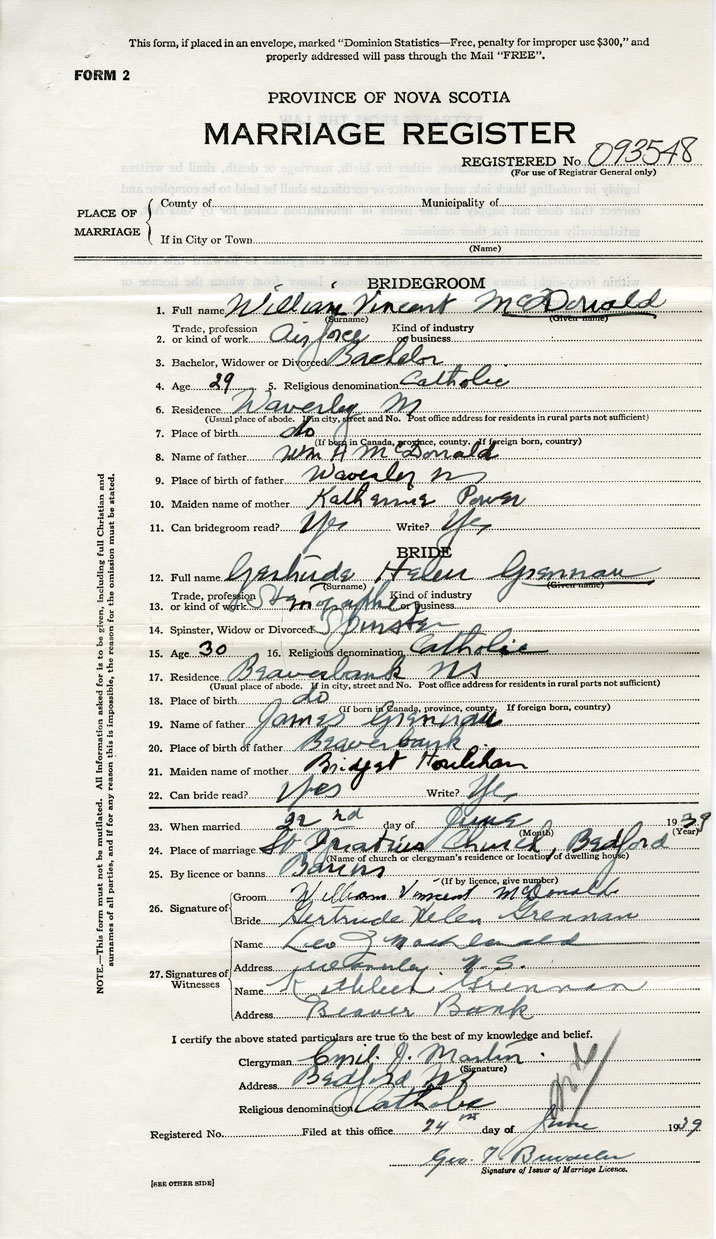 This form, if placed in an envelope, marked "Dominion Statistics—Free, penalty for improper use $300," and
properly addressed will pass through the Mail "FREE".
FORM 2
PROVINCE OF NOVA SCOTIA
MARRIAGE REGISTER
REGISTERED No. 093548
(For use of Registrar General only)
PLACE OF MARRIAGE
County of Municipality of
If in City or Town
(Name)
BRIDEGROOM
1. Full name William Vincent McDonald
(Surname) (Given name)
2. Trade, profession or kind of work Air force Kind of industry or business
3. Bachelor, Widower or Divorced Bachelor
4. Age 29 5. Religious denomination Catholic
6. Residence Waverley NS
(Usual place of abode. If in city, street and No. Post office address for residents in rural parts not sufficient)
7. Place of birth do
(If born in Canada, province, county, If foreign born, country)
8. Name of father Wm A McDonald
9. Place of birth of father Waverley NS
10. Maiden name of mother Katherine Power
11. Can bridegroom read? Yes Write? Yes
BRIDE
12. Full name Gertrude Helen Grennan
(Surname) (Given name)
13. Trade, profession or kind of work Stenographer Kind of industry or business
14. Spinster, Widow or Divorced Spinster
15. Age 30 16. Religious denomination Catholic
17. Residence Beaverbank NS
(Usual place of abode. If in city, street and No. Post office address for residents in rural parts not sufficient)
18. Place of birth do
(If born in Canada, province, county, If foreign born, country)
19. Name of father James Grennan
20. Place of birth of father Beaverbank
21. Maiden name of mother Bridget Houlihan
22. Can bride read? Yes Write? Yes
23. When married 22nd day of June 1939
(Month) (Year)
24. Place of marriage St Ignatius Church, Bedford
(Name of church or clergyman's residence or location of dwelling house)
25. By licence or banns Banns
(If by licence, give number)
26. Signature of Groom William Vincent McDonald
Bride Gertrude Helen Grennan
27. Signatures of Witnesses
Name Leo
Address Waverley, N.S.
Name Kathleen Grennan
Address Beaver Bank
I certify the above stated particulars are true to the best of my knowledge and belief.
Clergyman Cyril J. Martin.
(Signature)
Address Bedford NS
Religious denomination Catholic
Registered No. Filed at this office 24 day of June 1939
Geo. T
Signature of Issuer of Marriage Licence.
[SEE OTHER SIDE]
NOTE.—This form must not be mutilated. All Information asked for is to be given, including full Christian and
surnames of all parties, and if for any reason this is impossible, the reason for the omission must be stated.